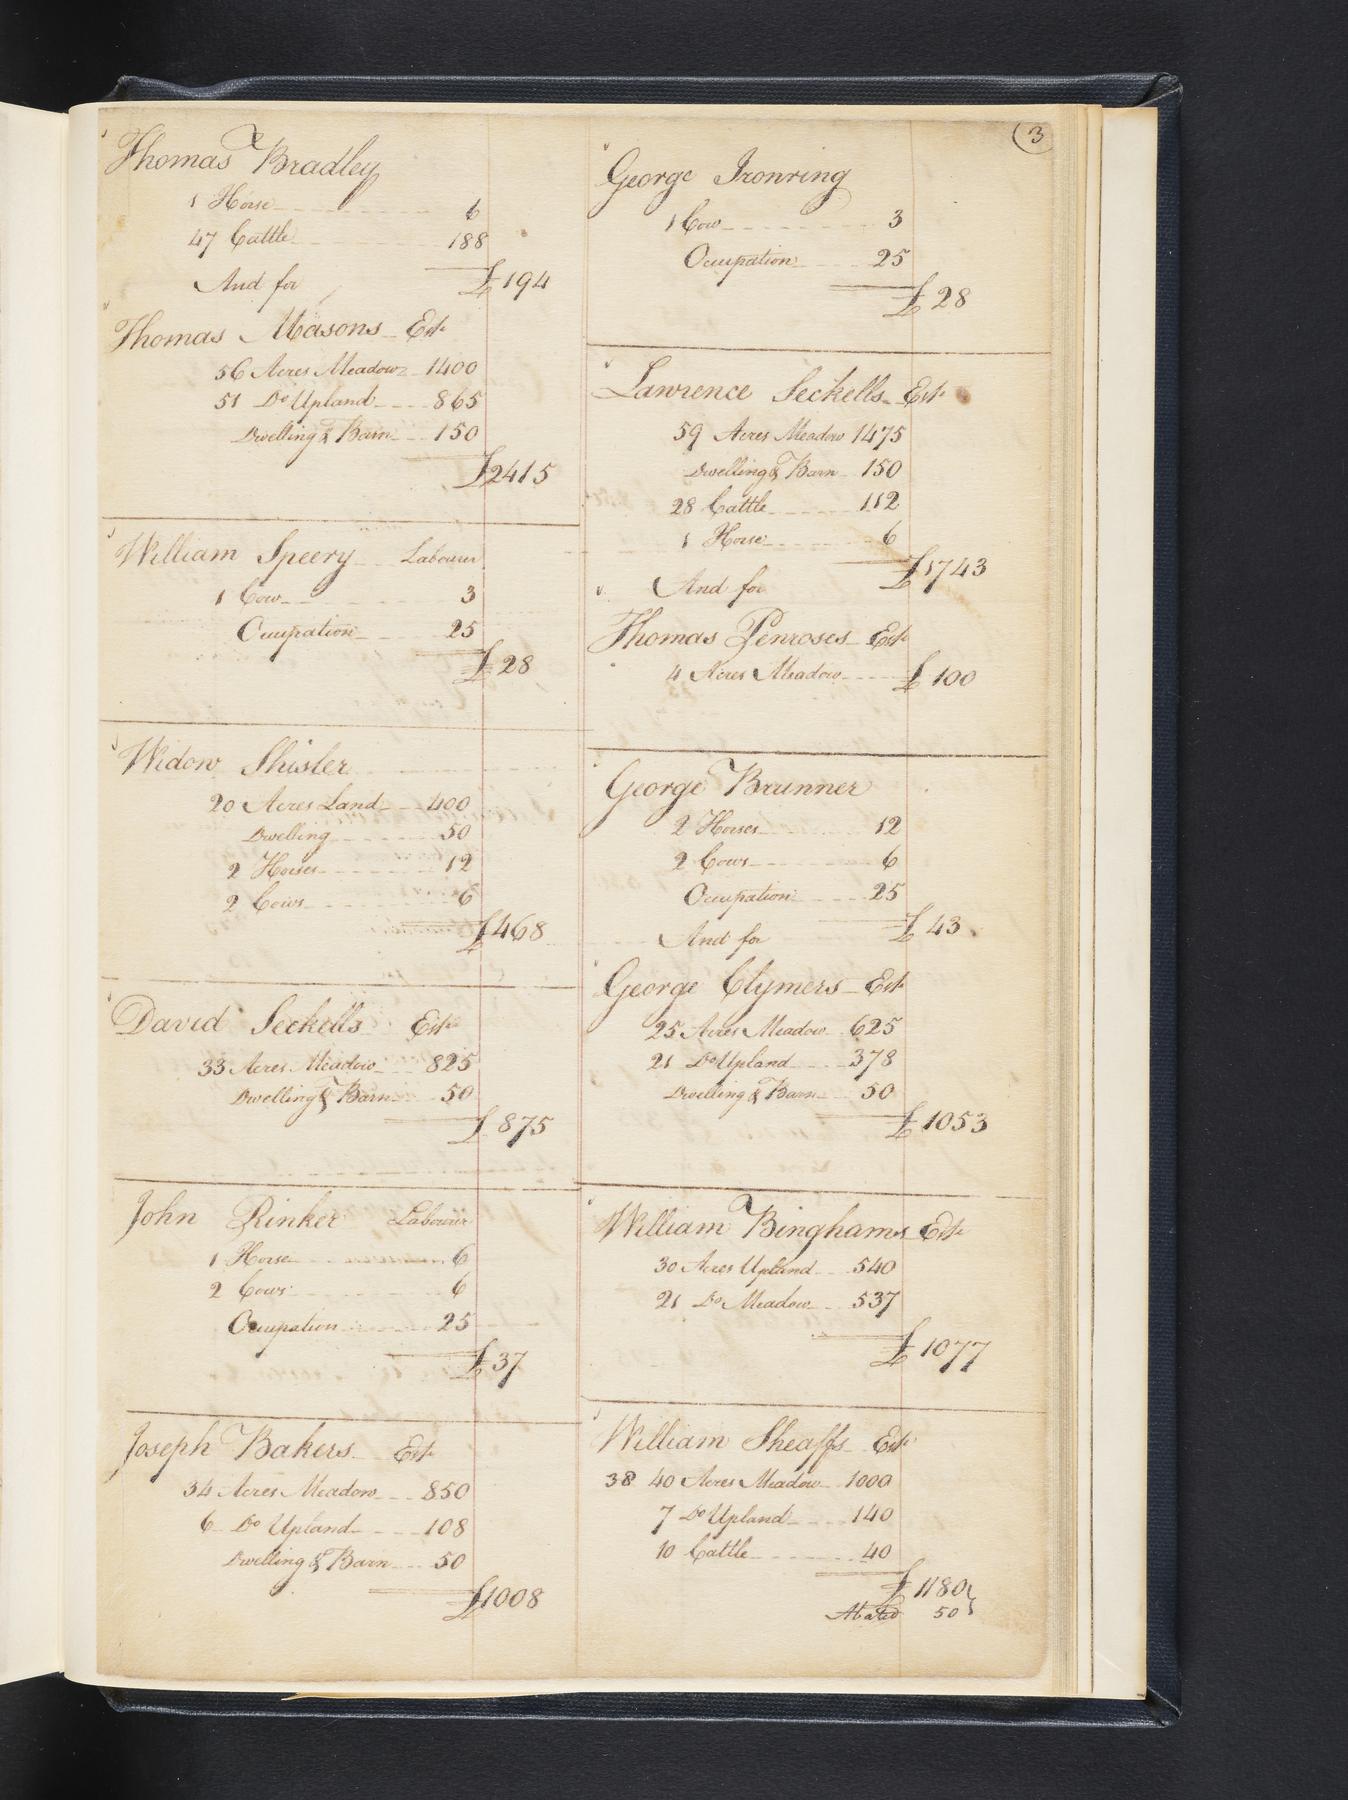 3
Thomas Bradley
1 Horse 6
47 Cattle 188
£194
And for
Thomas Masons Est.
56 Acres Meadow 1400
51 Do Upland 865
Dwelling & Barn 150
£2415
William Speery Labourer
1 Cow 3
Occupation 25
£28
Widow Shisler
20 Acres Land 400
Dwelling 50
2 Horses 12
2 Cows 6
£468
David Seckells Est.
33 Acres Meadow 825
Dwelling & Barn 50
£875
John Rinker Labourer
1 Horse 6
2 Cows 6
Occupation 25
£37
Joseph Bakers Est.
34 Acres Meadow 850
6 Do Upland 108
Dwelling & Barn 50
£1008
George Ironring
1 Cow 3
Occupation 25
£28
Lawrence Seckells Est.
59 Acres Meadow 1475
Dwelling & Barn 150
28 Cattle 112
1 Horse 6
£1743
And for
Thomas Penroses Est.
4 Acres Meadow £100
George Brunner
2 Horses 12
2 Cows 6
Occupation 25
£43
And for
George Clymers Est.
25 Acres Meadow 625
21 Do Upland 378
Dwelling & Barn 50
£1053
William Binghams Est.
30 Acres Upland 540
21 Do Meadow 537
£1077
William Sheaffs Est.
38 40 Acres Meadow 1000
7 Do Upland 140
10 Cattle 40
£1180
Abated 50